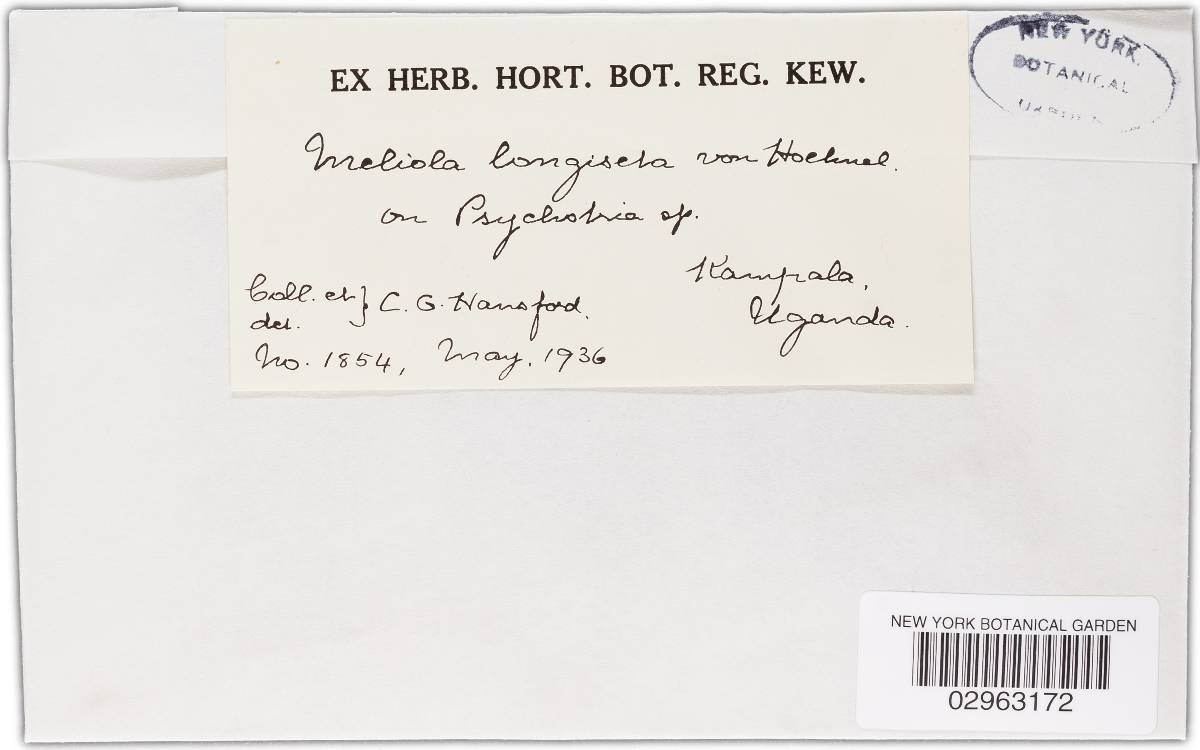 EX HERB. HORT. BOT. REG. KEW.
Meliola longiseta von Hoehnel.
on Psychotria sp.
Kampala,
Uganda.
Coll. et } C. G. Hansford.
det.
No. 1854, May. 1936
NEW YORK
BOTANICAL
NEW YORK BOTANICAL GARDEN
02963172